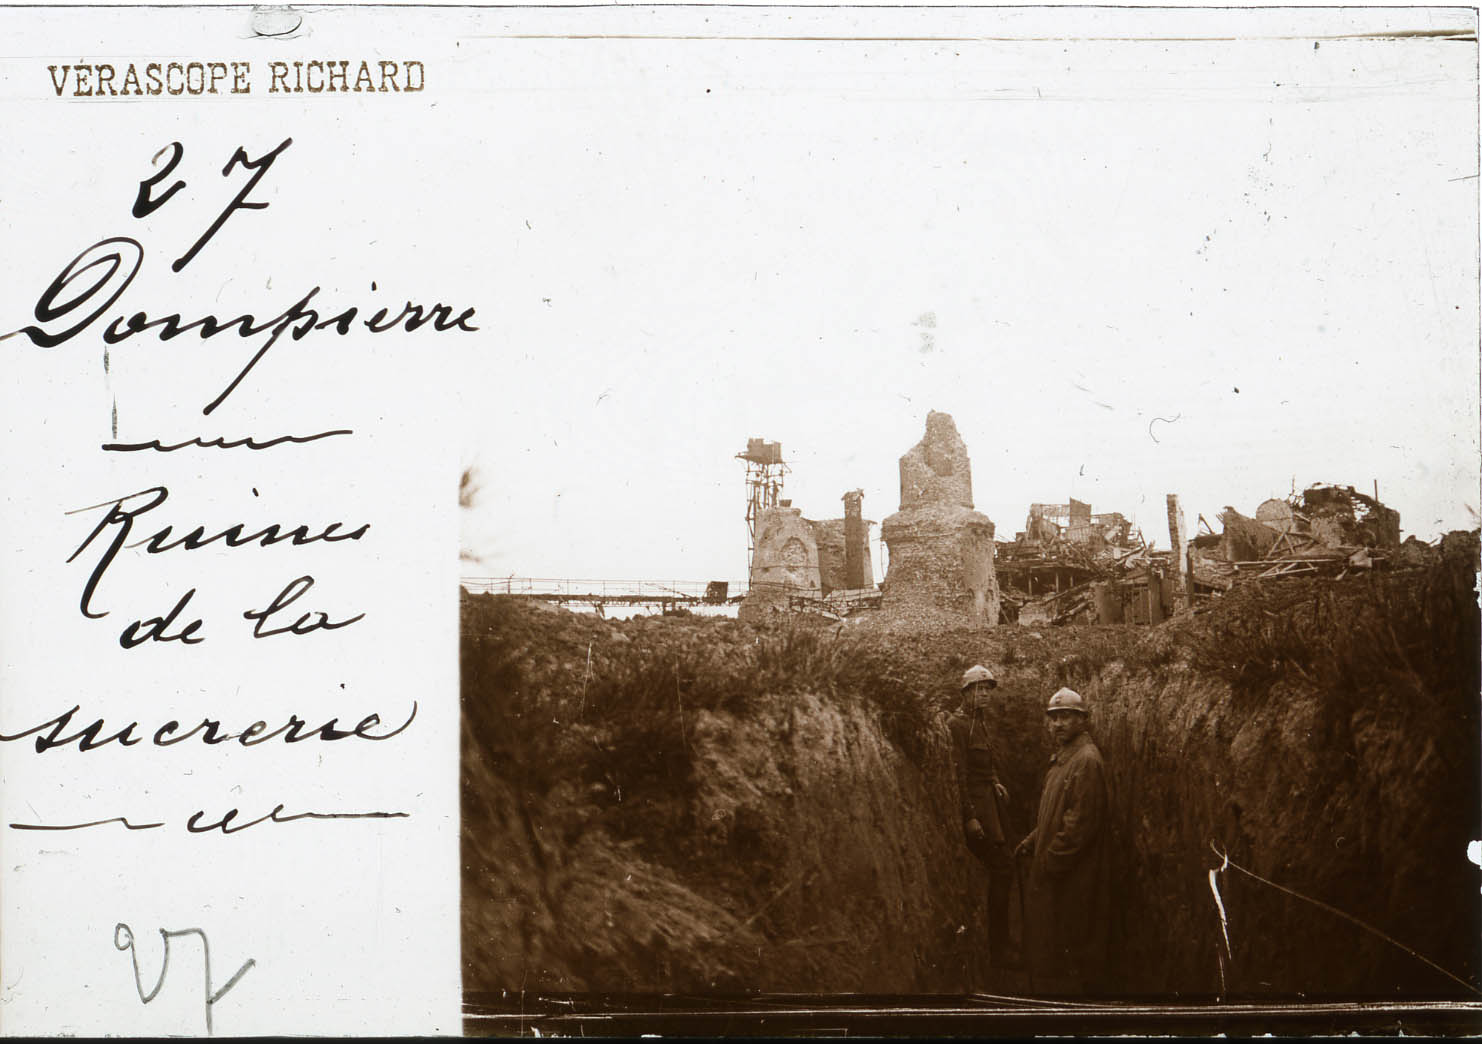 VÉRASCOPE RICHARD
27
Dompierre
Ruines
de la
sucrerie
27